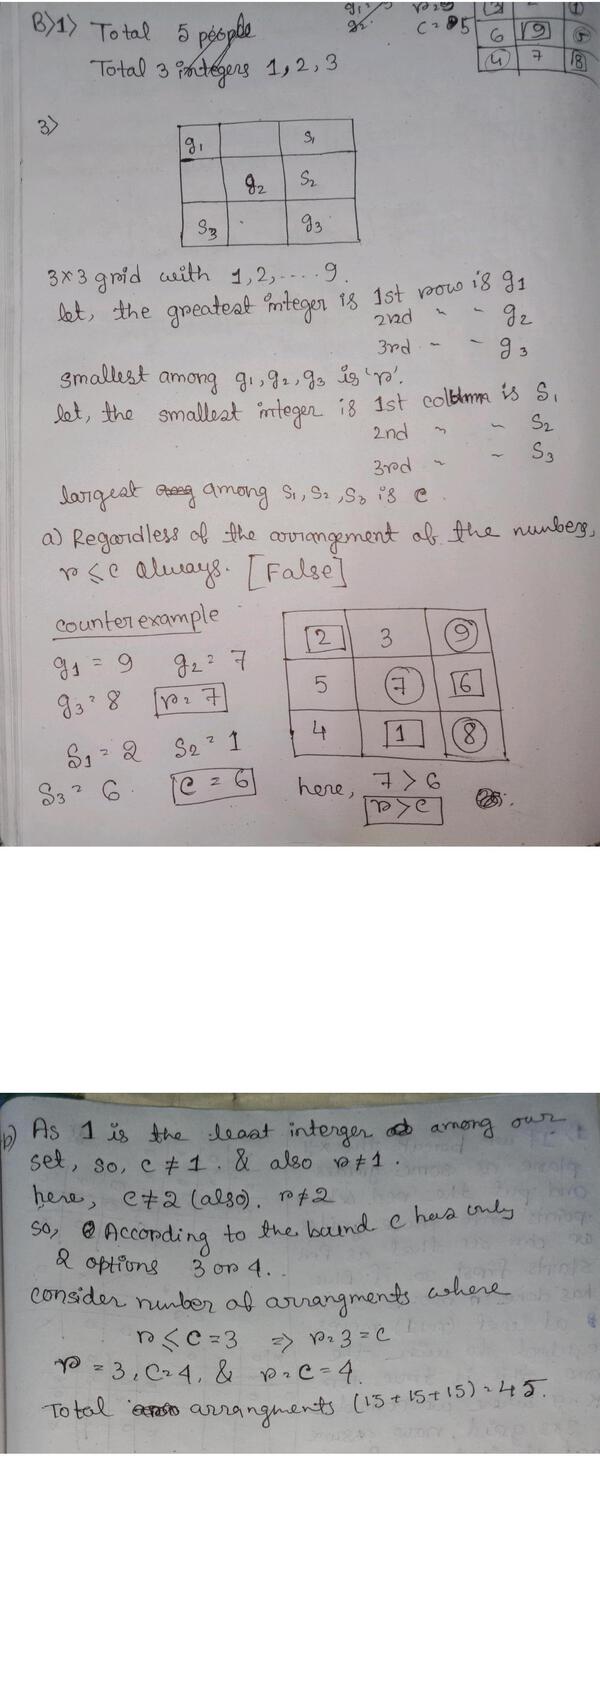 B>1> Total 5 people
Total 3 integers 1, 2, 3
g1
g2
C = 5
3 1
6 9 5
4 7 8
3>
g1 S1
g2 S2
S3 g3
3×3 grid with 1, 2, .... 9.
let, the greatest integer is 1st row is g1
2nd " " g2
3rd " " g3
smallest among g1, g2, g3 is 'r'.
let, the smallest integer is 1st column is S1
2nd " " S2
3rd " " S3
largest among S1, S2, S3 is c.
a) Regardless of the arrangement of the numbers,
r ≤ c always. [False]
counterexample
g1 = 9 g2 = 7
g3 = 8 r = 7
S1 = 2 S2 = 1
S3 = 6 c = 6
2 3 9
5 7 6
4 1 8
here, 7 > 6
r > c
b) As 1 is the least interger among our
set, so, c ≠ 1. & also r ≠ 1.
here, c ≠ 2 (also). r ≠ 2
so, According to the bound c has only
2 options 3 or 4..
consider number of arrangments where
r ≤ c = 3 ⇒ r = 3 = c
r = 3, c = 4, & r = c = 4.
Total arrangments (15 + 15 + 15) = 45.